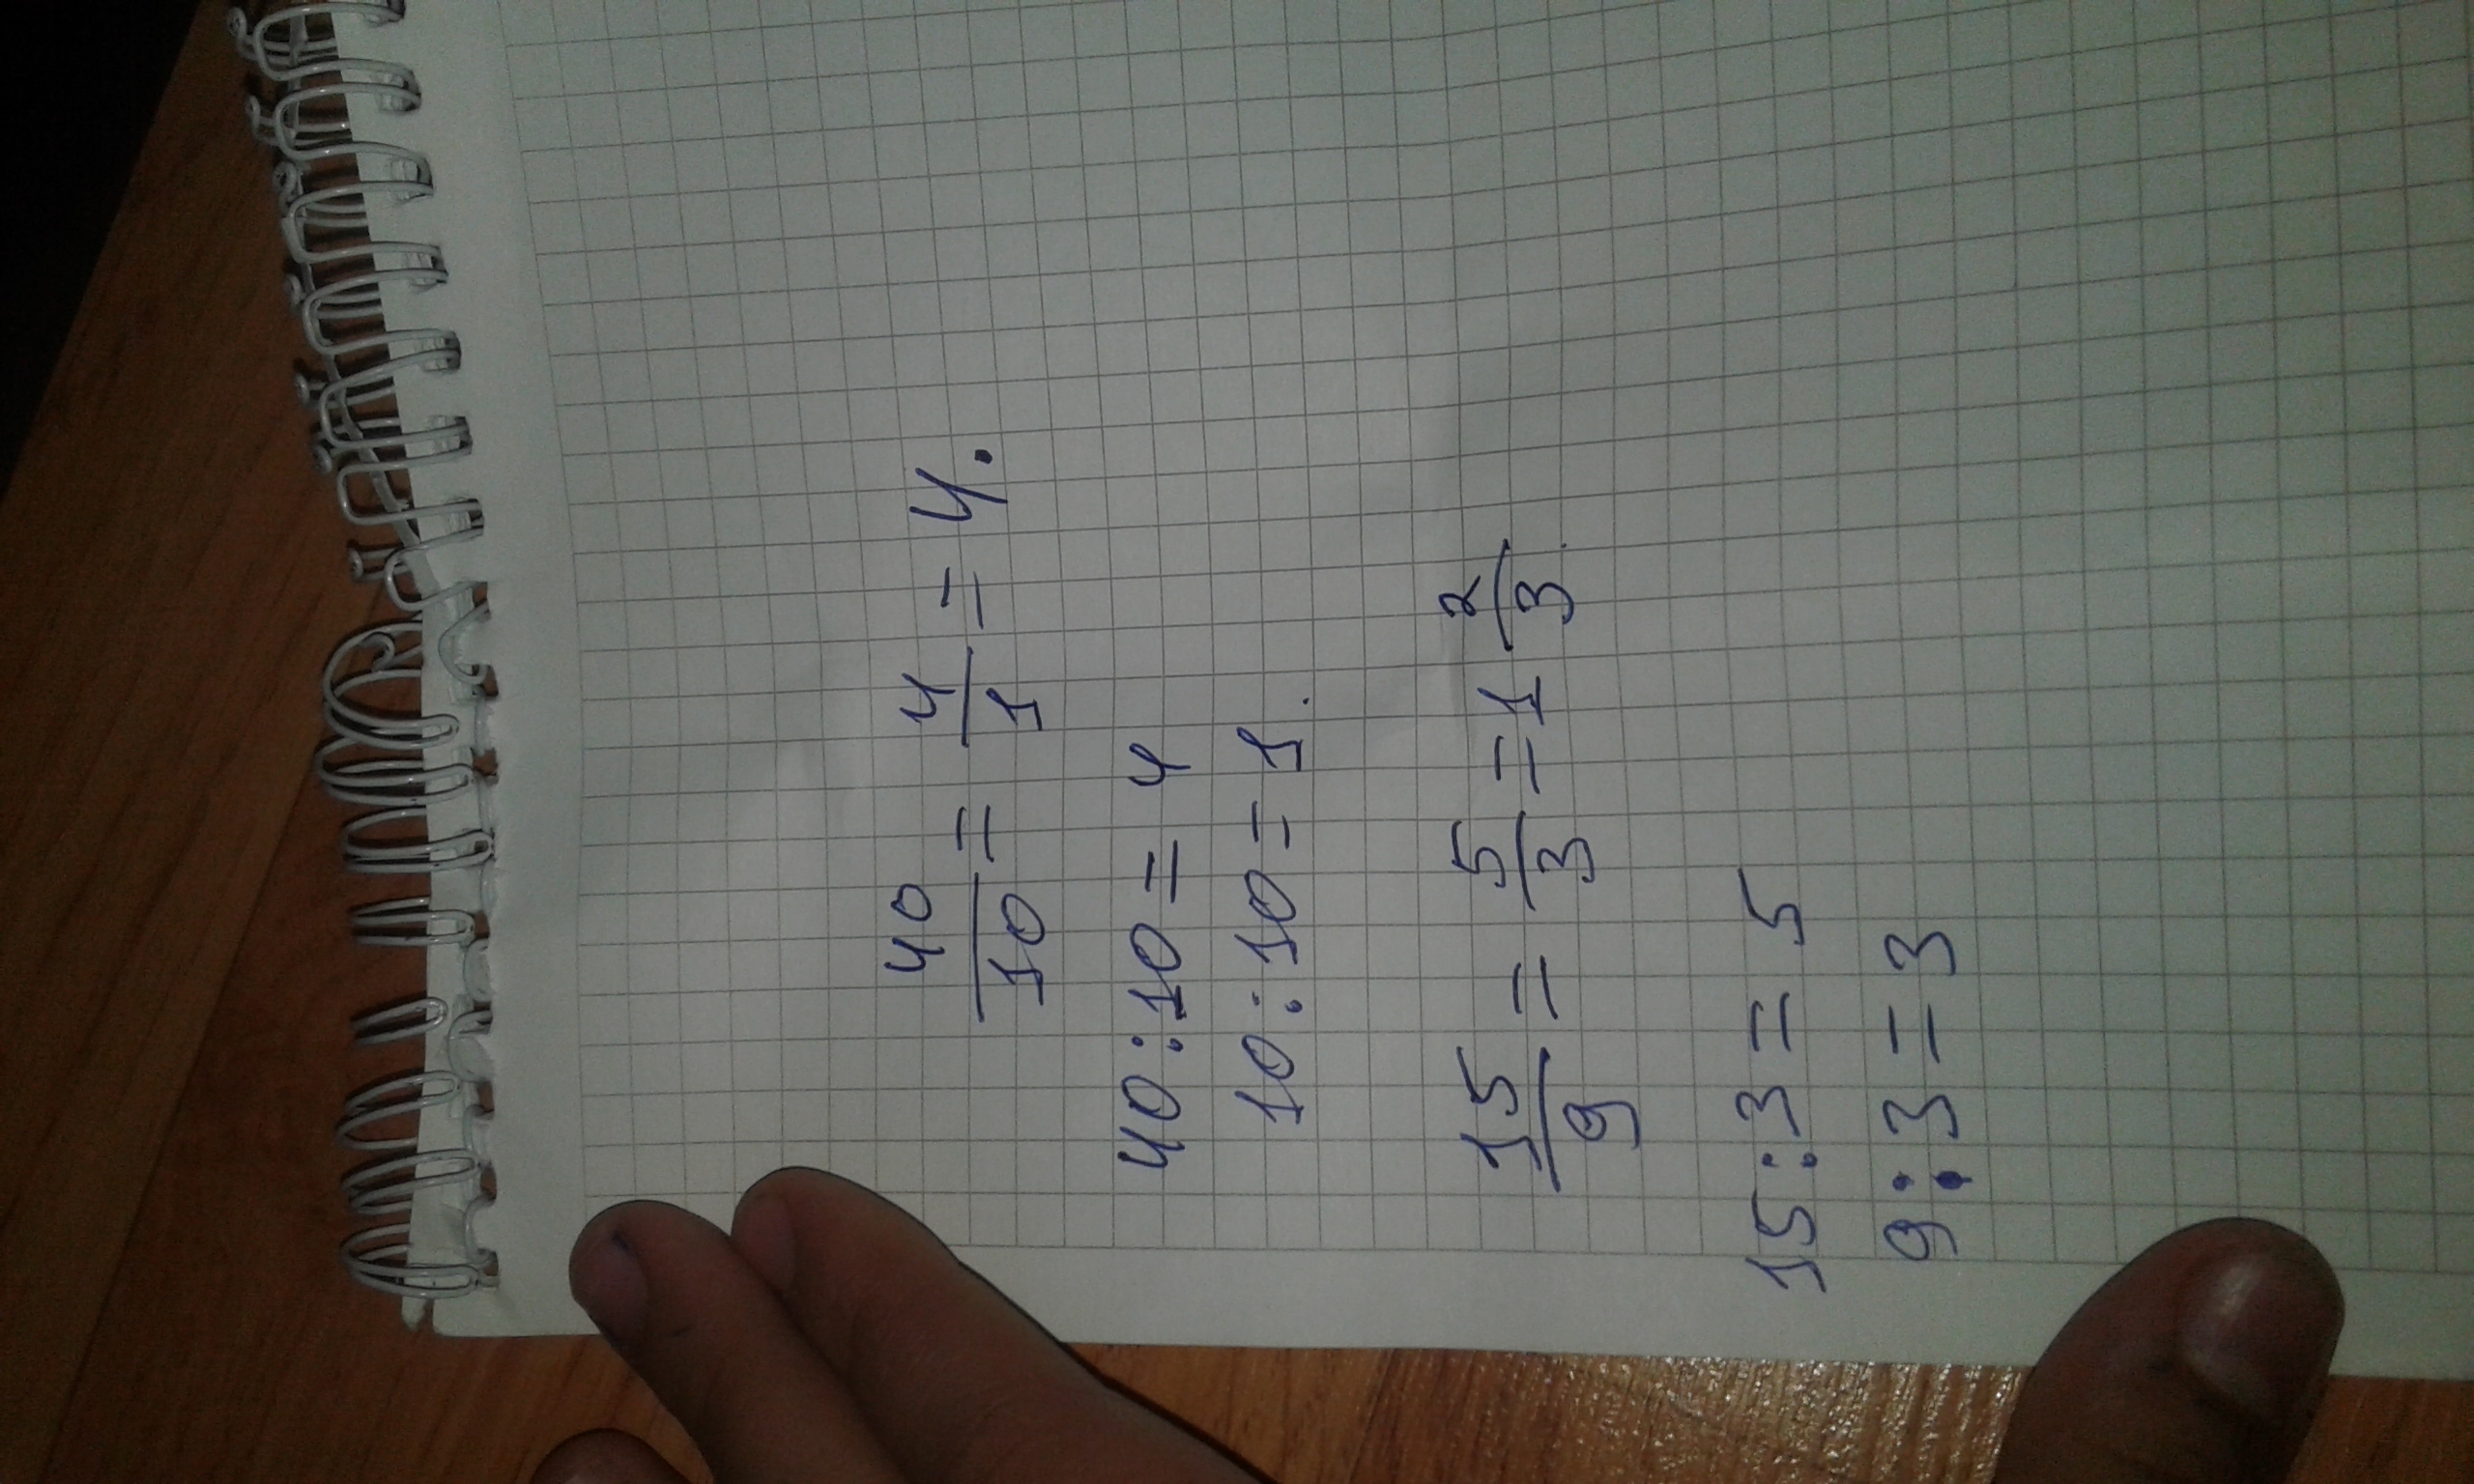 40/10 = 4/1 = 4.
40:10=4
10:10=1.
15/9 = 5/3 = 1 2/3
15:3=5
9:3=3